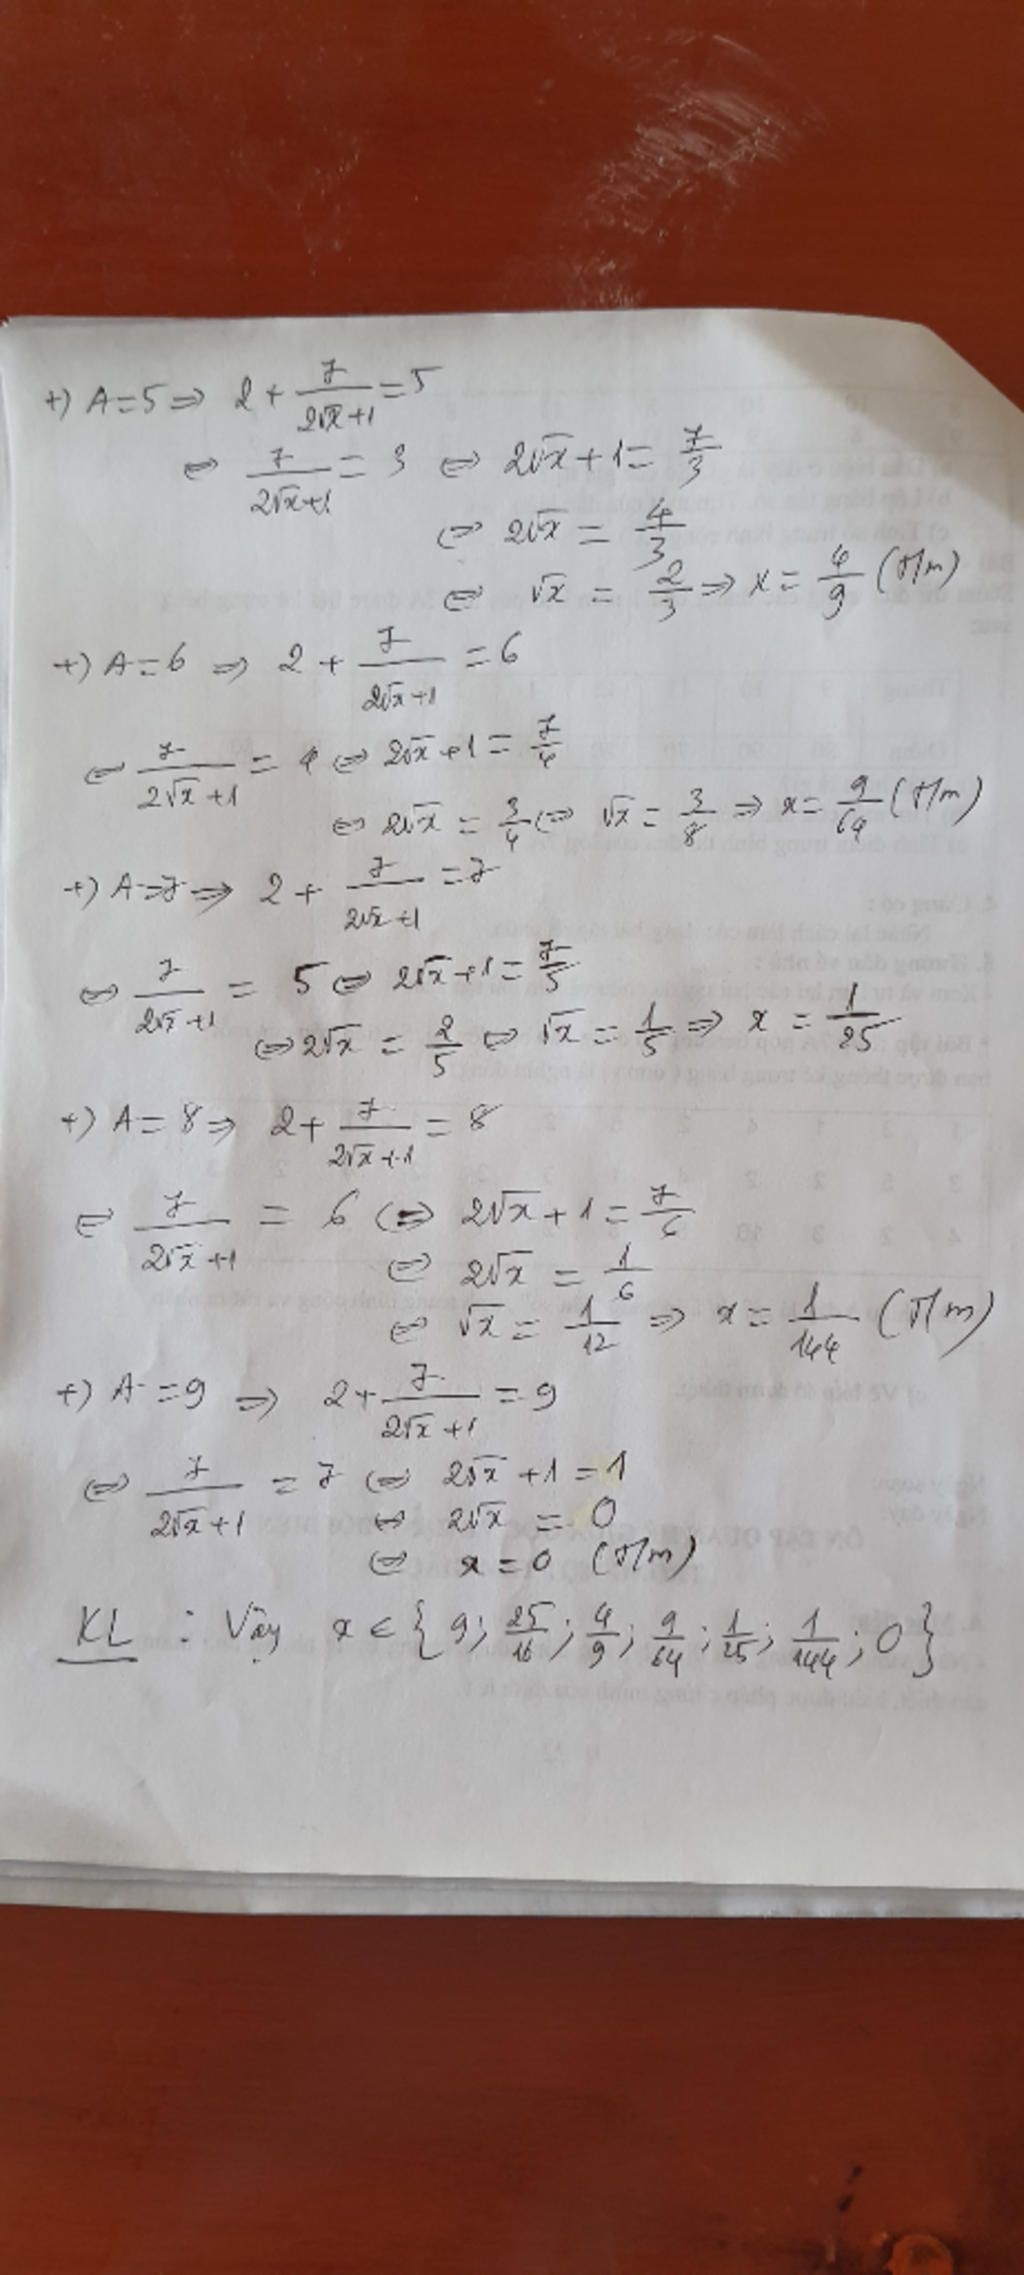 +) A=5 ⇒ 2 + 7/(2√x+1) = 5
⇔ 7/(2√x+1) = 3 ⇔ 2√x + 1 = 7/3
⇔ 2√x = 4/3
⇔ √x = 2/3 ⇒ x = 4/9 (T/m)
+) A=6 ⇒ 2 + 7/(2√x+1) = 6
⇔ 7/(2√x+1) = 4 ⇔ 2√x+1 = 7/4
⇔ 2√x = 3/4 ⇔ √x = 3/8 ⇒ x = 9/64 (T/m)
+) A=7 ⇒ 2 + 7/(2√x+1) = 7
⇔ 7/(2√x+1) = 5 ⇔ 2√x+1 = 7/5
⇔ 2√x = 2/5 ⇔ √x = 1/5 ⇒ x = 1/25
+) A=8 ⇒ 2 + 7/(2√x+1) = 8
⇔ 7/(2√x+1) = 6 ⇔ 2√x + 1 = 7/6
⇔ 2√x = 1/6
⇔ √x = 1/12 ⇒ x = 1/144 (T/m)
+) A=9 ⇒ 2 + 7/(2√x+1) = 9
⇔ 7/(2√x+1) = 7 ⇔ 2√x + 1 = 1
⇔ 2√x = 0
⇔ x = 0 (T/m)
KL : Vậy x ∈ {9; 25/16; 4/9; 9/64; 1/25; 1/144; 0}